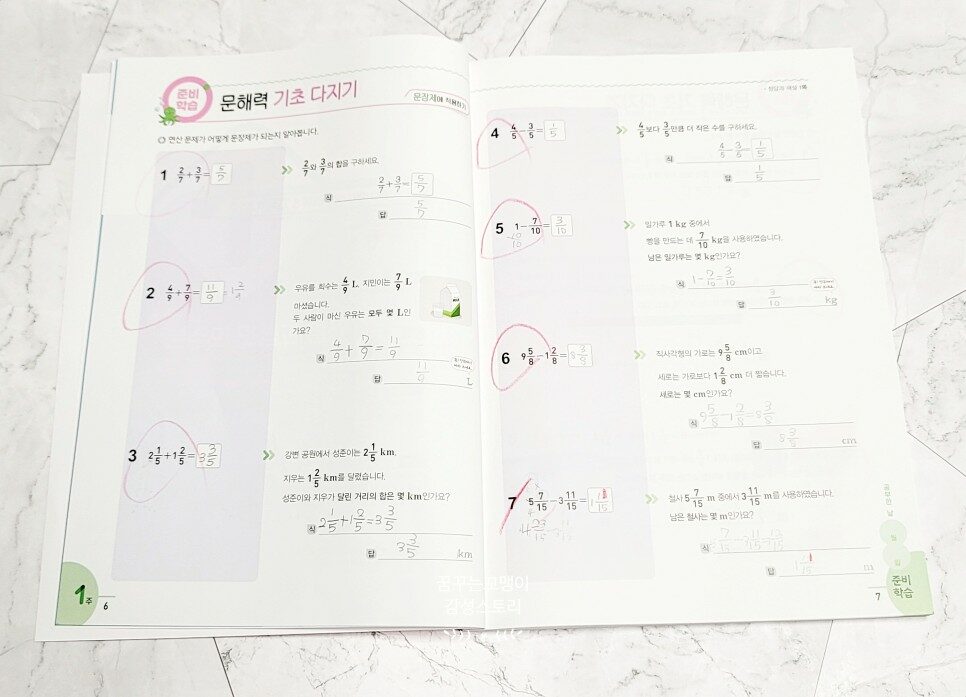 준비
학습
문해력 기초 다지기
문장제에 적용하기
연산 문제가 어떻게 문장제가 되는지 알아봅니다.
1 2/7 + 3/7 = 5/7
2/7와 3/7의 합을 구하세요.
식 2/7 + 3/7 = 5/7
답 5/7
2 4/9 + 7/9 = 11/9 = 1 2/9
우유를 희수는 4/9 L, 지민이는 7/9 L
마셨습니다.
두 사람이 마신 우유는 모두 몇 L인
가요?
식 4/9 + 7/9 = 11/9
답 11/9 L
3 2 1/5 + 1 2/5 = 3 3/5
강변 공원에서 성준이는 2 1/5 km,
지우는 1 2/5 km를 달렸습니다.
성준이와 지우가 달린 거리의 합은 몇 km인가요?
식 2 1/5 + 1 2/5 = 3 3/5
답 3 3/5 km
1주
6
정답과 해설 1쪽
4 4/5 - 3/5 = 1/5
4/5보다 3/5만큼 더 작은 수를 구하세요.
식 4/5 - 3/5 = 1/5
답 1/5
5 1 - 7/10 = 3/10
10/10
밀가루 1 kg 중에서
빵을 만드는 데 7/10 kg을 사용하였습니다.
남은 밀가루는 몇 kg인가요?
식 1 - 7/10 = 3/10
답 3/10 kg
6 9 5/8 - 1 2/8 = 8 3/8
직사각형의 가로는 9 5/8 cm이고
세로는 가로보다 1 2/8 cm 더 짧습니다.
세로는 몇 cm인가요?
식 9 5/8 - 1 2/8 = 8 3/8
답 8 3/8 cm
7 5 7/15 - 3 11/15 = 1 /15
철사 5 7/15 m 중에서 3 11/15 m를 사용하였습니다.
남은 철사는 몇 m인가요?
식
답 m
공부한 날
월
일
준비
학습
7
꿈꾸는고맹이
감성스토리